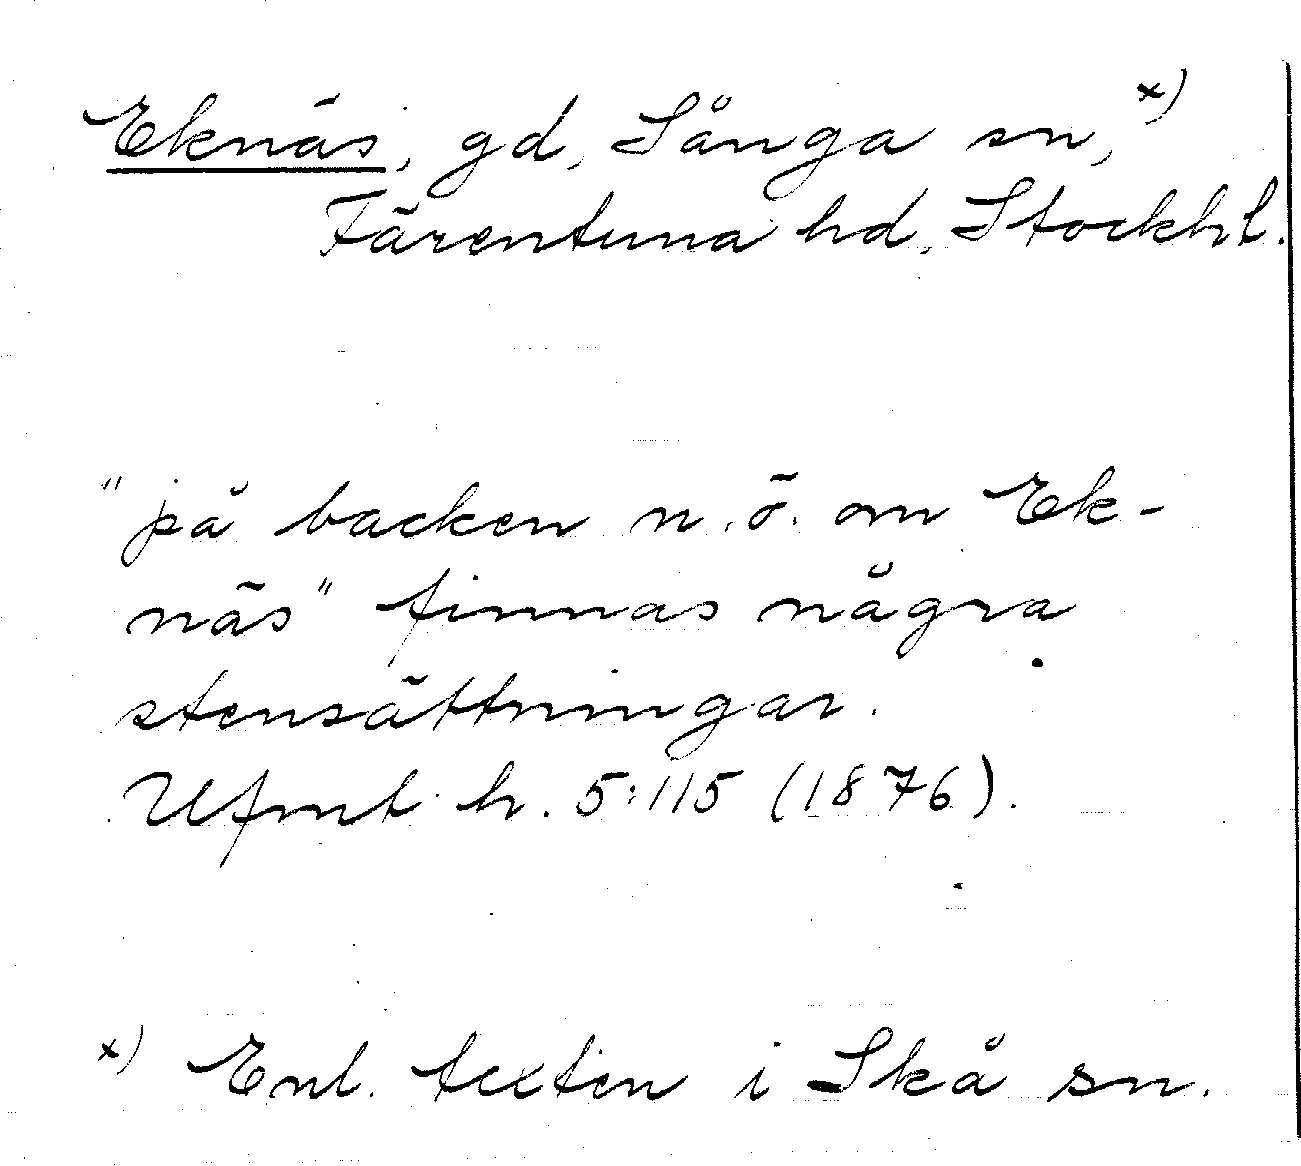 Eknäs, gd, Sånga sn, x)
Färentuna hd, Stockhl.
"på backen n.ö. om Ek-
näs" finnas några
stensättningar.
Ufmt h. 5:115 (1876).
x) Enl. texten i Skå sn.